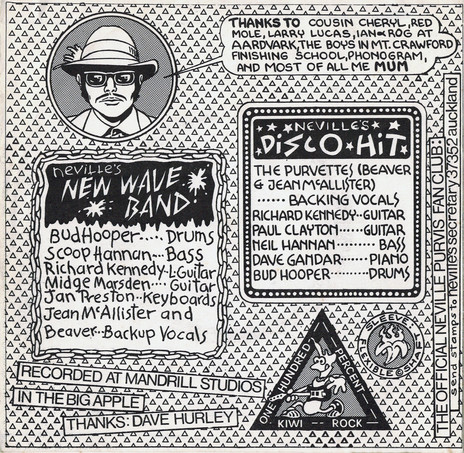 THANKS TO COUSIN CHERYL, RED
MOLE, LARRY LUCAS, IAN & ROG AT
AARDVARK, THE BOYS IN MT. CRAWFORD
FINISHING SCHOOL, PHONOGRAM,
AND MOST OF ALL ME MUM
neville's
NEW WAVE
BAND
Bud Hooper.... Drums
Scoop Hannan... Bass
Richard Kennedy-L.Guitar
Midge Marsden.... Guitar
Jan Preston..Keyboards
Jean McAllister and
Beaver..Backup Vocals
NEVILLE'S
DISCO HIT
THE PURVETTES (BEAVER
& JEAN McALLISTER)
...... BACKING VOCALS
RICHARD KENNEDY..GUITAR
PAUL CLAYTON......GUITAR
NEIL HANNAN........BASS
DAVE GANDAR......PIANO
BUD HOOPER.......DRUMS
THE OFFICIAL NEVILLE PURVIS FAN CLUB:
send stamps to neville's secretary 37352 auckland
RECORDED AT MANDRILL STUDIOS
IN THE BIG APPLE
THANKS: DAVE HURLEY
ONE HUNDRED PERCENT
KIWI ROCK
SLEEVE:
FLEXIBLE & SNAP